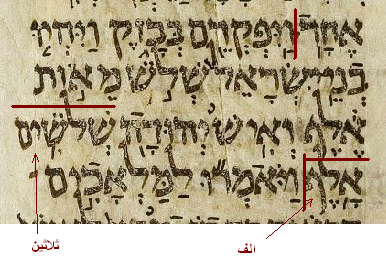 אֶחָד׃ וַיִּפְקְדֵם בְּבָזֶק וַיִּהְיוּ
בְנֵי יִשְׂרָאֵל שְׁלֹשׁ מֵאוֹת
אֶלֶף וְאִישׁ יְהוּדָה שְׁלֹשִׁים
אָלֶף׃ וַיֹּאמְרוּ לַמַּלְאָכִים
الف ثلاثين